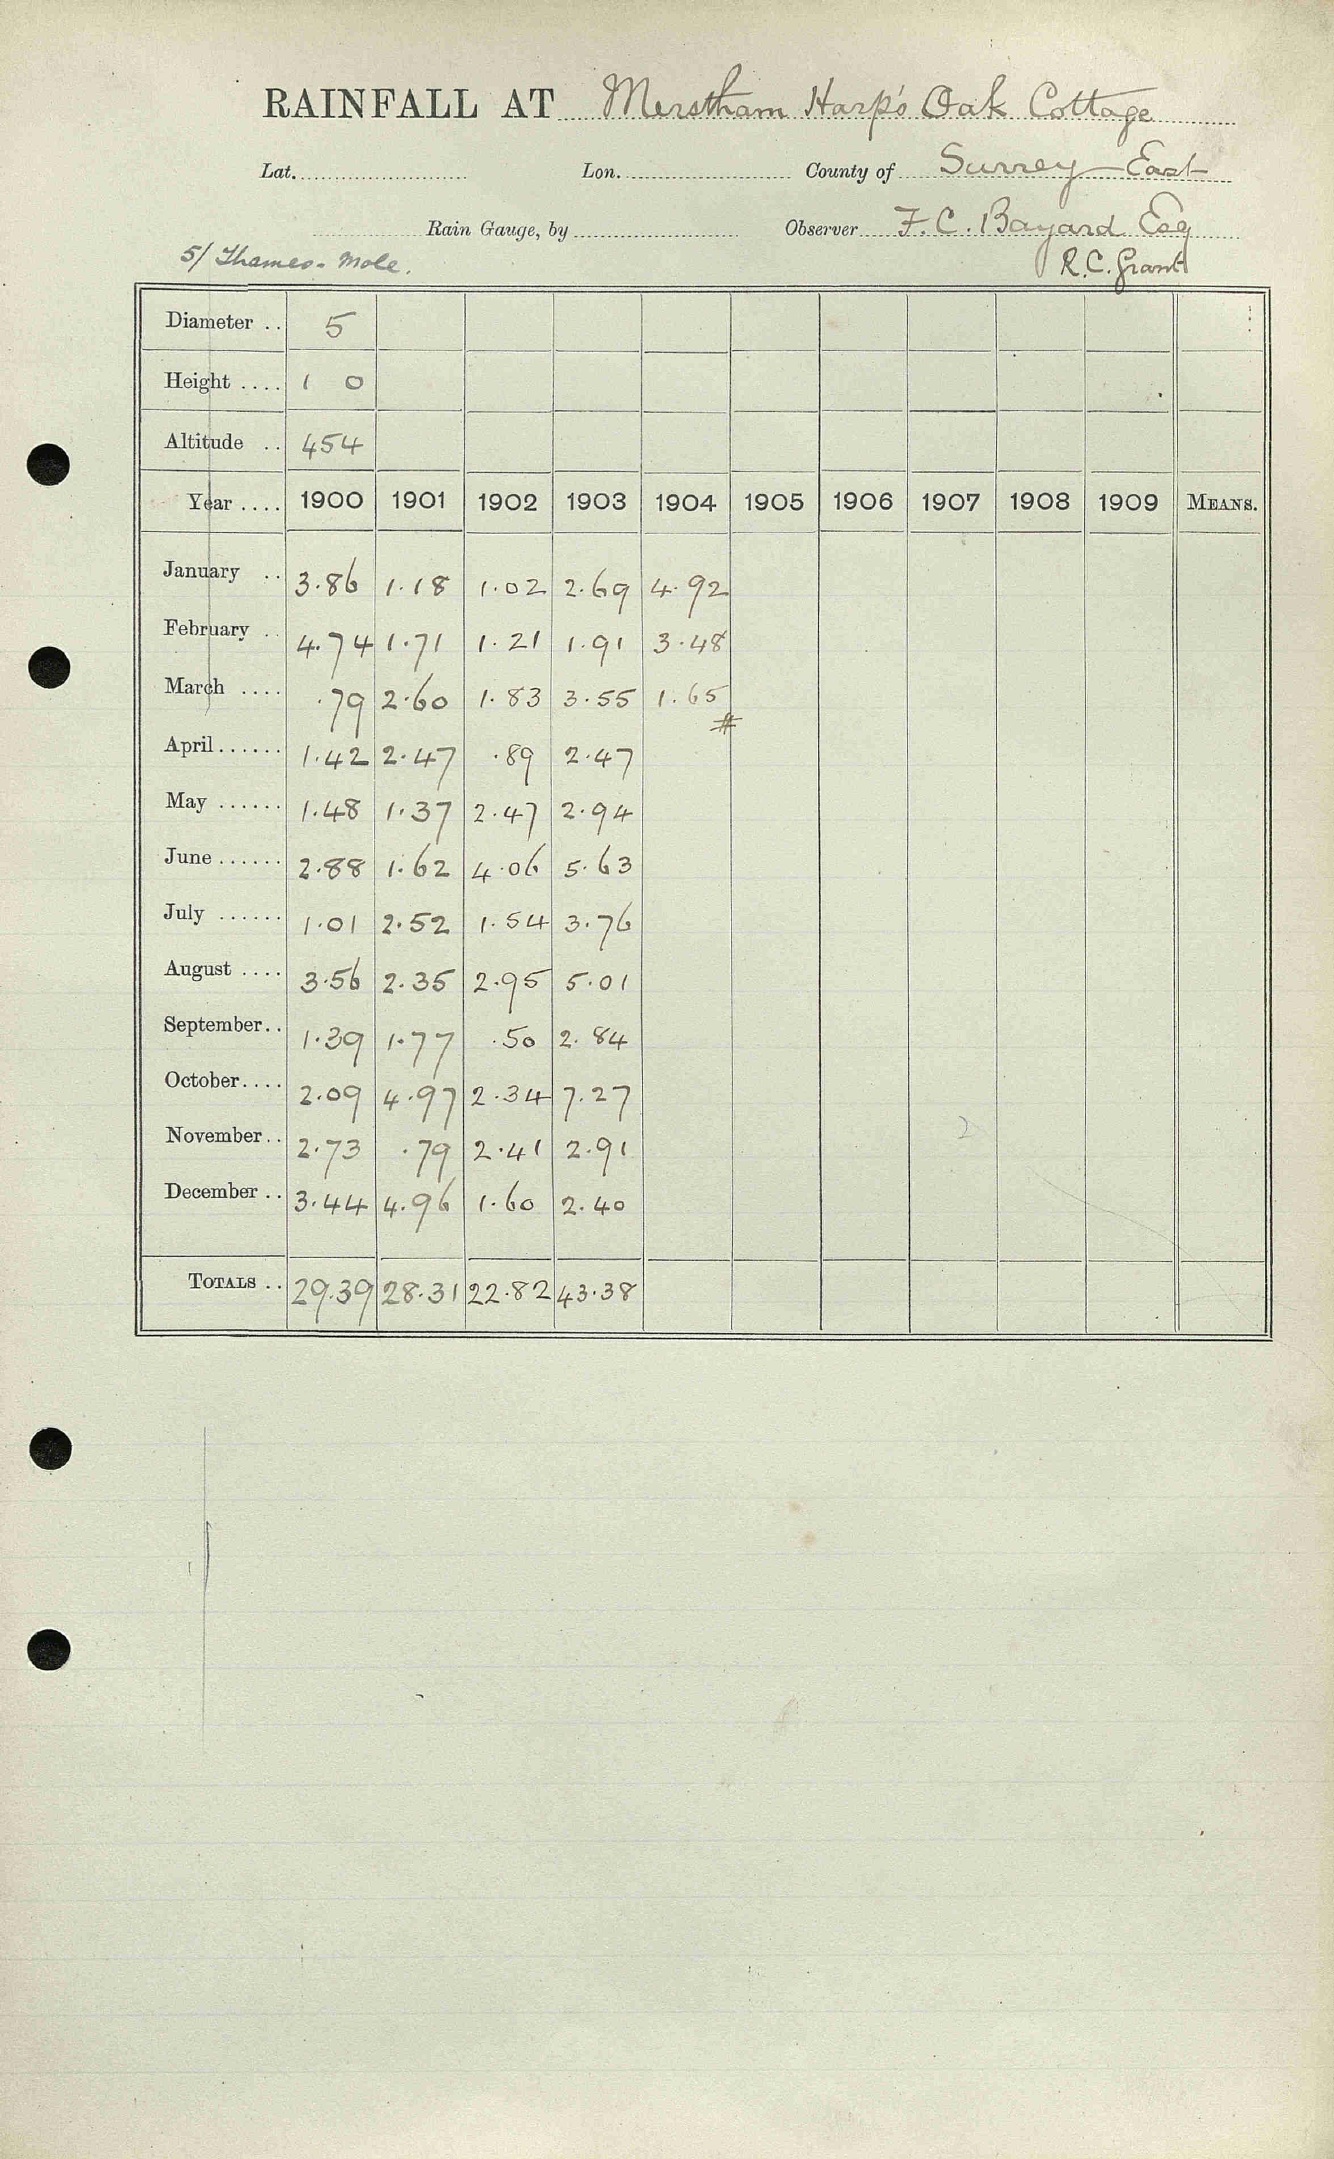 RAINFALL AT Merstham Harp's Oak Cottage
Lat. Lon. County of Surrey - East
Rain Gauge, by Observer F. C. Bayard Esq
5/ Thames - Mole. R.C. Grant
Diameter .. 5
Height .... 1 0
Altitude .. 454
Year .... 1900 1901 1902 1903 1904 1905 1906 1907 1908 1909 MEANS.
January .. 3.86 1.18 1.02 2.69 4.92
February .. 4.74 1.71 1.21 1.91 3.48
March .... .79 2.60 1.83 3.55 1.65
#
April ...... 1.42 2.47 .89 2.47
May ...... 1.48 1.37 2.47 2.94
June ...... 2.88 1.62 4.06 5.63
July ...... 1.01 2.52 1.54 3.76
August .... 3.56 2.35 2.95 5.01
September.. 1.39 1.77 .50 2.84
October.... 2.09 4.97 2.34 7.27
November.. 2.73 .79 2.41 2.91
December .. 3.44 4.96 1.60 2.40
TOTALS .. 29.39 28.31 22.82 43.38